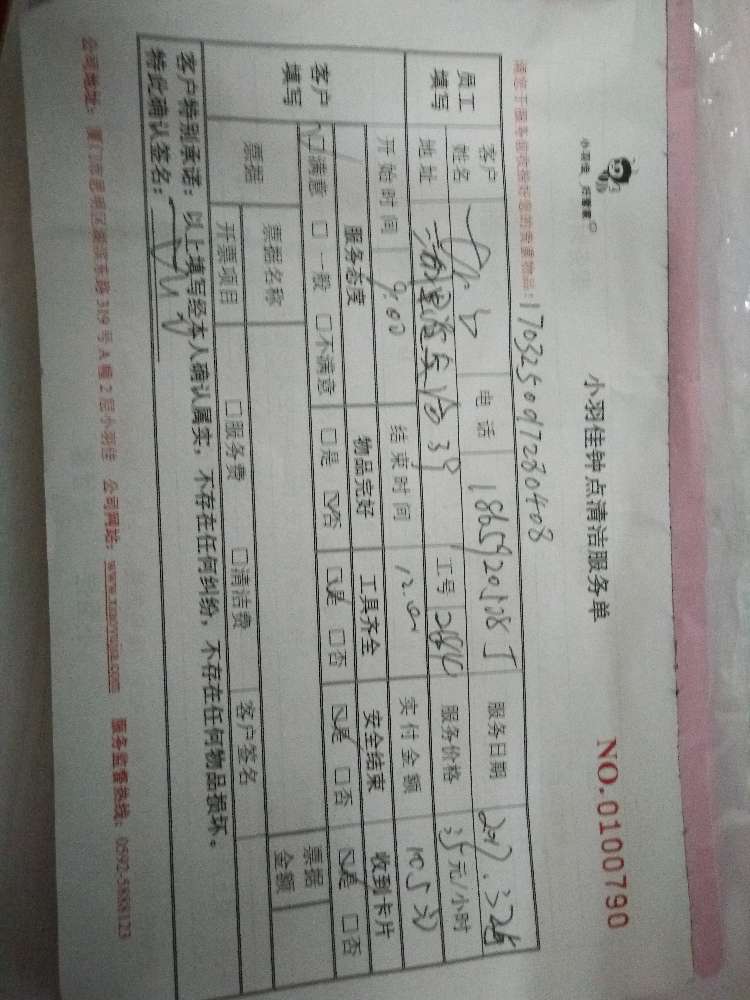 小羽佳 好管家
小羽佳钟点清洁服务单
NO.0100790
请您于服务前收拾您的贵重物品：1703250917280408
员工填写
客户姓名
电话
服务日期
地址
工号
服务价格 35 元/小时
开始时间 9:00
结束时间 12:00
实付金额 105元
客户填写
服务态度 物品完好 工具齐全 安全结束 收到卡片
☑满意 □一般 □不满意 □是 ☑否 ☑是 □否 ☑是 □否 ☑是 □否
票据
票据名称
票据金额
开票项目 □服务费 □清洁费
客户签名
客户特别承诺：以上填写经本人确认属实，不存在任何纠纷，不存在任何物品损坏。
特此确认签名：
公司地址：厦门市思明区湖滨东路319号A幢2层小羽佳 公司网站：www.xiaoyujia.com 服务监督热线：0592-5888123